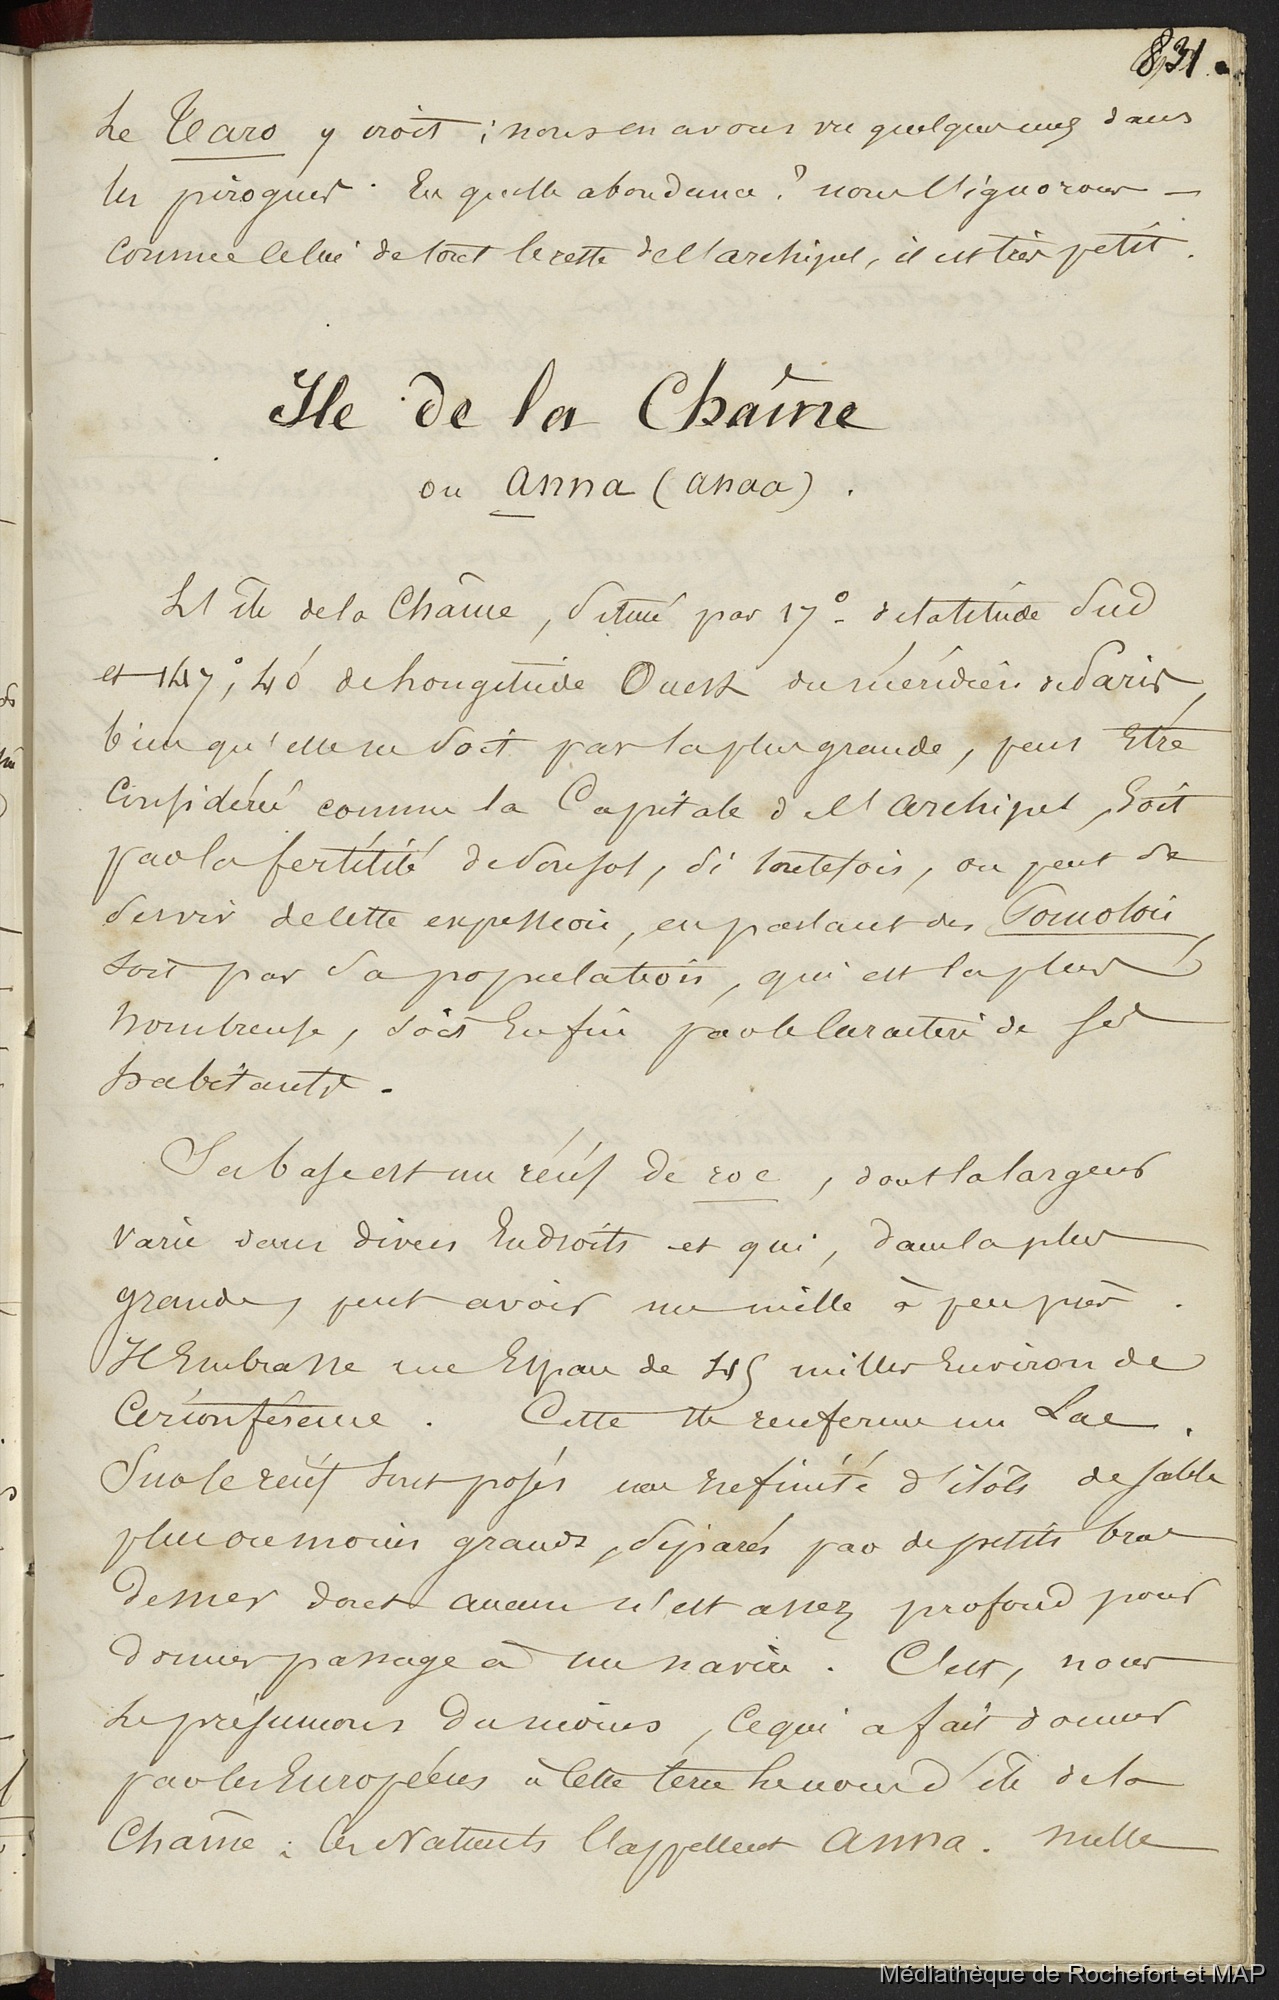 831.
Le Taro y croit ; nous en avons vu quelques uns dans
les pirogues. En quelle abondance ? nous l'ignorons —
comme celui de tout le reste de l'archipel, il est très petit.
Ile de la Chaîne
ou Anna (anaa).
L'île de la Chaîne, située par 17° de latitude Sud
et 147°, 40' de Longitude Ouest du méridien de Paris,
bien qu'elle ne soit pas la plus grande, peut Etre
considérée comme la Capitale de l'Archipel, soit
par la fertilité de son sol, si toutefois, on peut se
servir de cette expression, en parlant des Pomotou,
soit par sa population, qui est la plus
nombreuse, soit Enfin par le Caractère de ses
habitants.
Sa base est un récif de roc, dont la largeur
varie dans divers Endroits et qui, dans la plus
grande, peut avoir un mille à peu près.
Il Embrasse une Espace de 45 milles Environ de
Circonférence. Cette Ile renferme un Lac.
Sur le récif sont posés une infinité d'ilôts de sable
plus ou moins grands, séparés par de petits bras
de mer dont aucun n'est assez profond pour
donner passage à un navire. C'est, nous
le présumons du moins, ce qui a fait donner
par les Européens à cette terre le nom d'île de la
Chaîne ; les Naturels l'appellent Anna. Nulle
Médiathèque de Rochefort et MAP